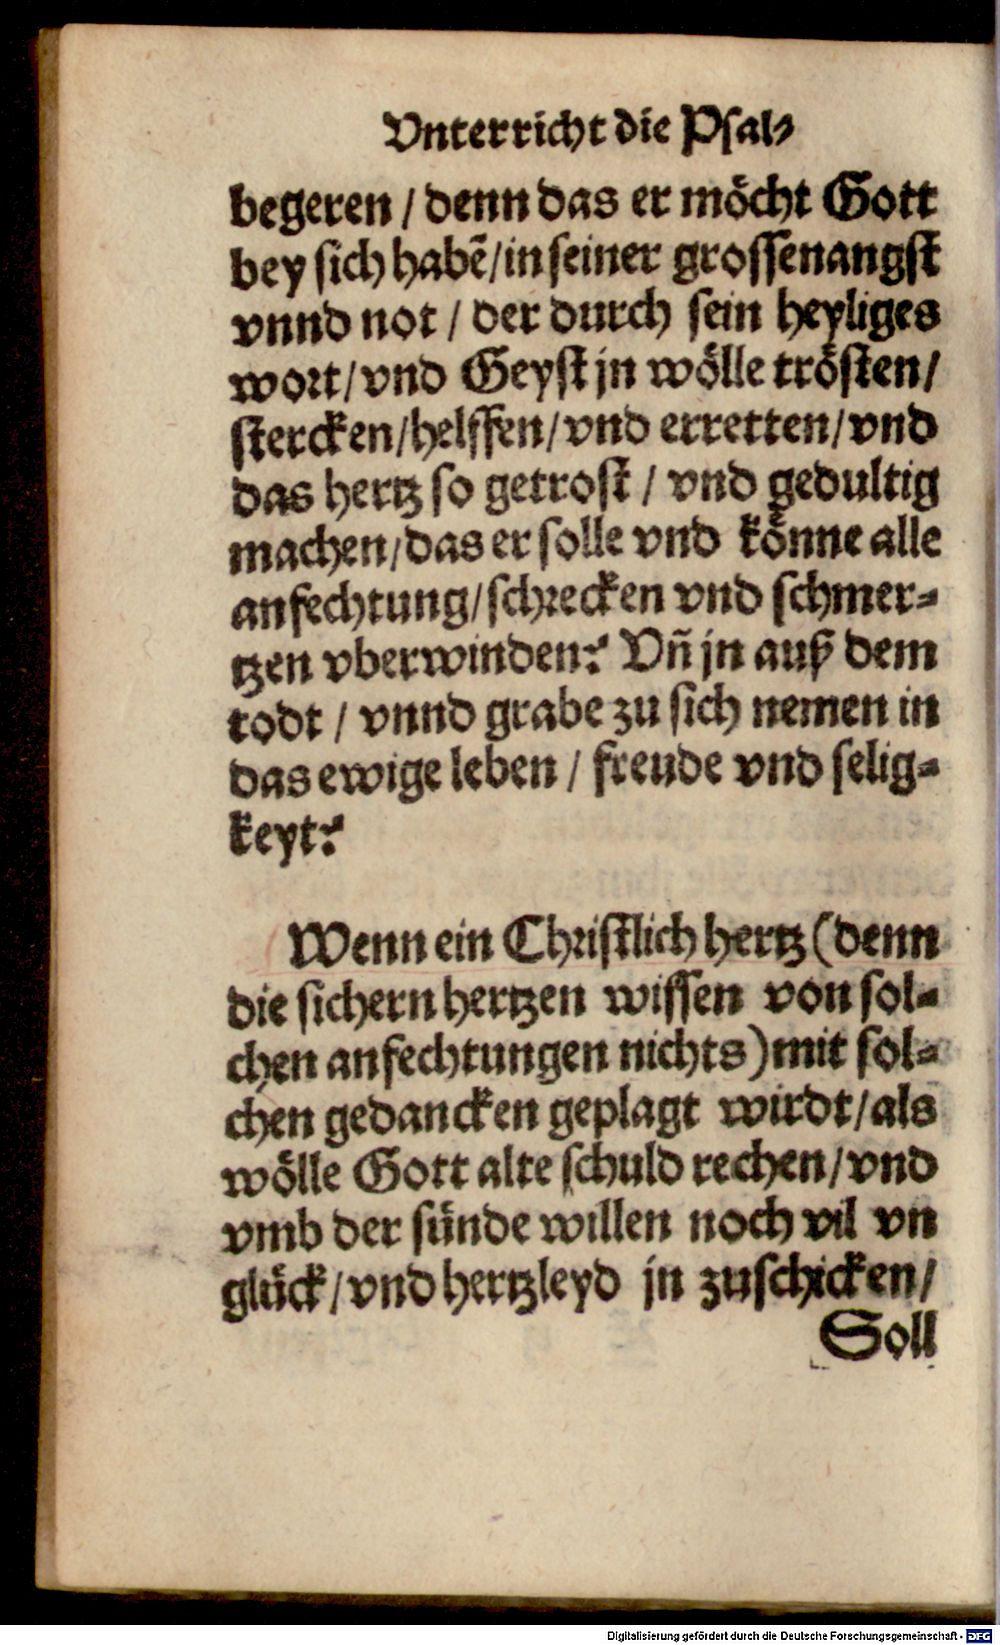 Vnterricht die Psal-
begeren / denn das er möcht Gott
bey sich habẽ/in seiner grossenangst
vnnd not / der durch sein heyliges
wort/vnd Geyst jn wölle trösten/
stercken/helffen/vnd erretten/vnd
das hertz so getrost / vnd gedultig
machen/das er solle vnd könne alle
anfechtung/schrecken vnd schmer-
tzen vberwinden? Vñ jn auß dem
todt / vnnd grabe zu sich nemen in
das ewige leben / freude vnd selig-
keyt?
Wenn ein Christlich hertz (denn
die sichern hertzen wissen von sol-
chen anfechtungen nichts) mit sol-
chen gedancken geplagt wirdt/als
wölle Gott alte schuld rechen/vnd
vmb der sünde willen noch vil vn
glück/vnd hertzleyd jn zuschicken/
Soll
Digitalisierung gefördert durch die Deutsche Forschungsgemeinschaft - DFG